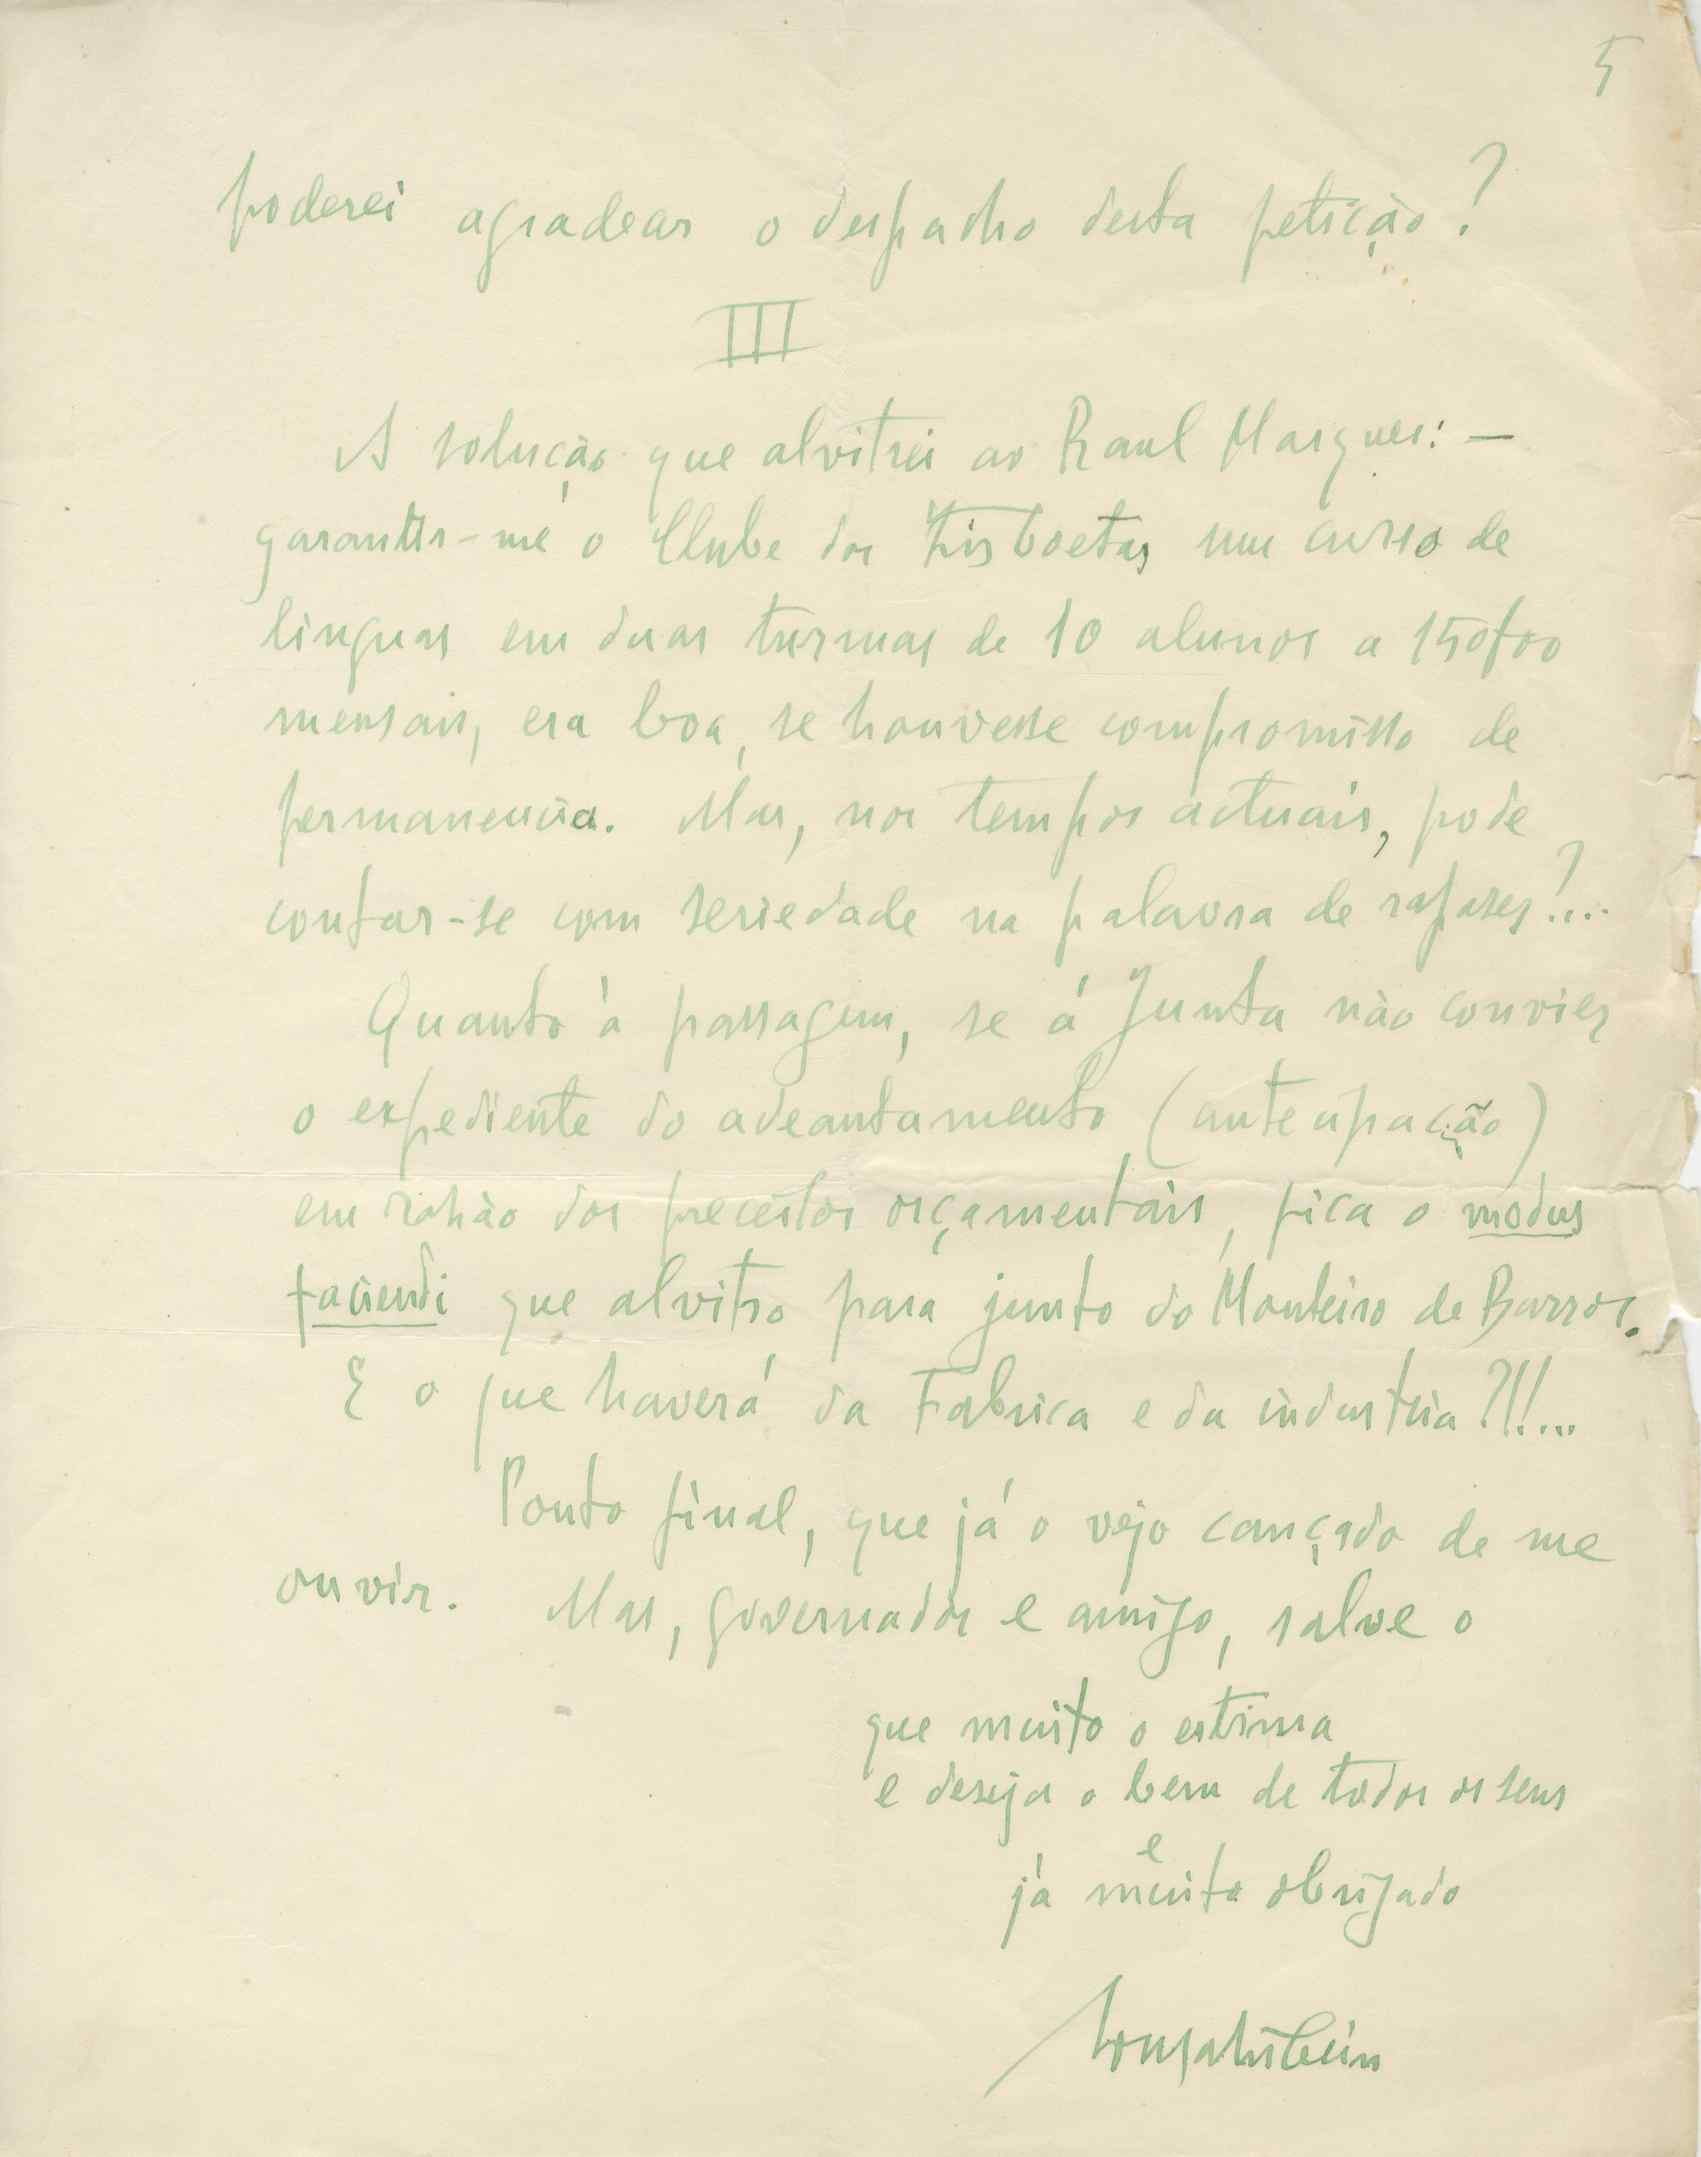 5
poderei agradecer o despacho desta petição?
III
A solução que alvitrei ao Raul Marques: —
garantir-me o Clube dos Lisboetas um curso de
linguas em duas turmas de 10 alunos a 150$00
mensais, era boa, se houvesse compromisso de
permanencia. Mas, nos tempos actuais, pode
contar-se com seriedade na palavra de rapases?...
Quanto à passagem, se á Junta não convier
o expediente do adeantamento (antecipação)
em rasão dos preceitos orçamentais, fica o modus
faciendi que alvitro para junto do Monteiro de Barros.
E o que haverá da Fabrica e da industria?!!...
Ponto final, que já o vejo cançado de me
ouvir. Mas, governador e amigo, salve o
que muito o estima
e deseja o bem de todos os seus
e
já muito obrigado